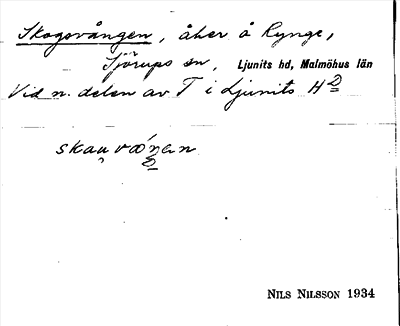 Skogsvången, åker å Rynge,
Sjörups sn, Ljunits hd, Malmöhus län
Vid n. delen av T i Ljunits HD
NILS NILSSON 1934